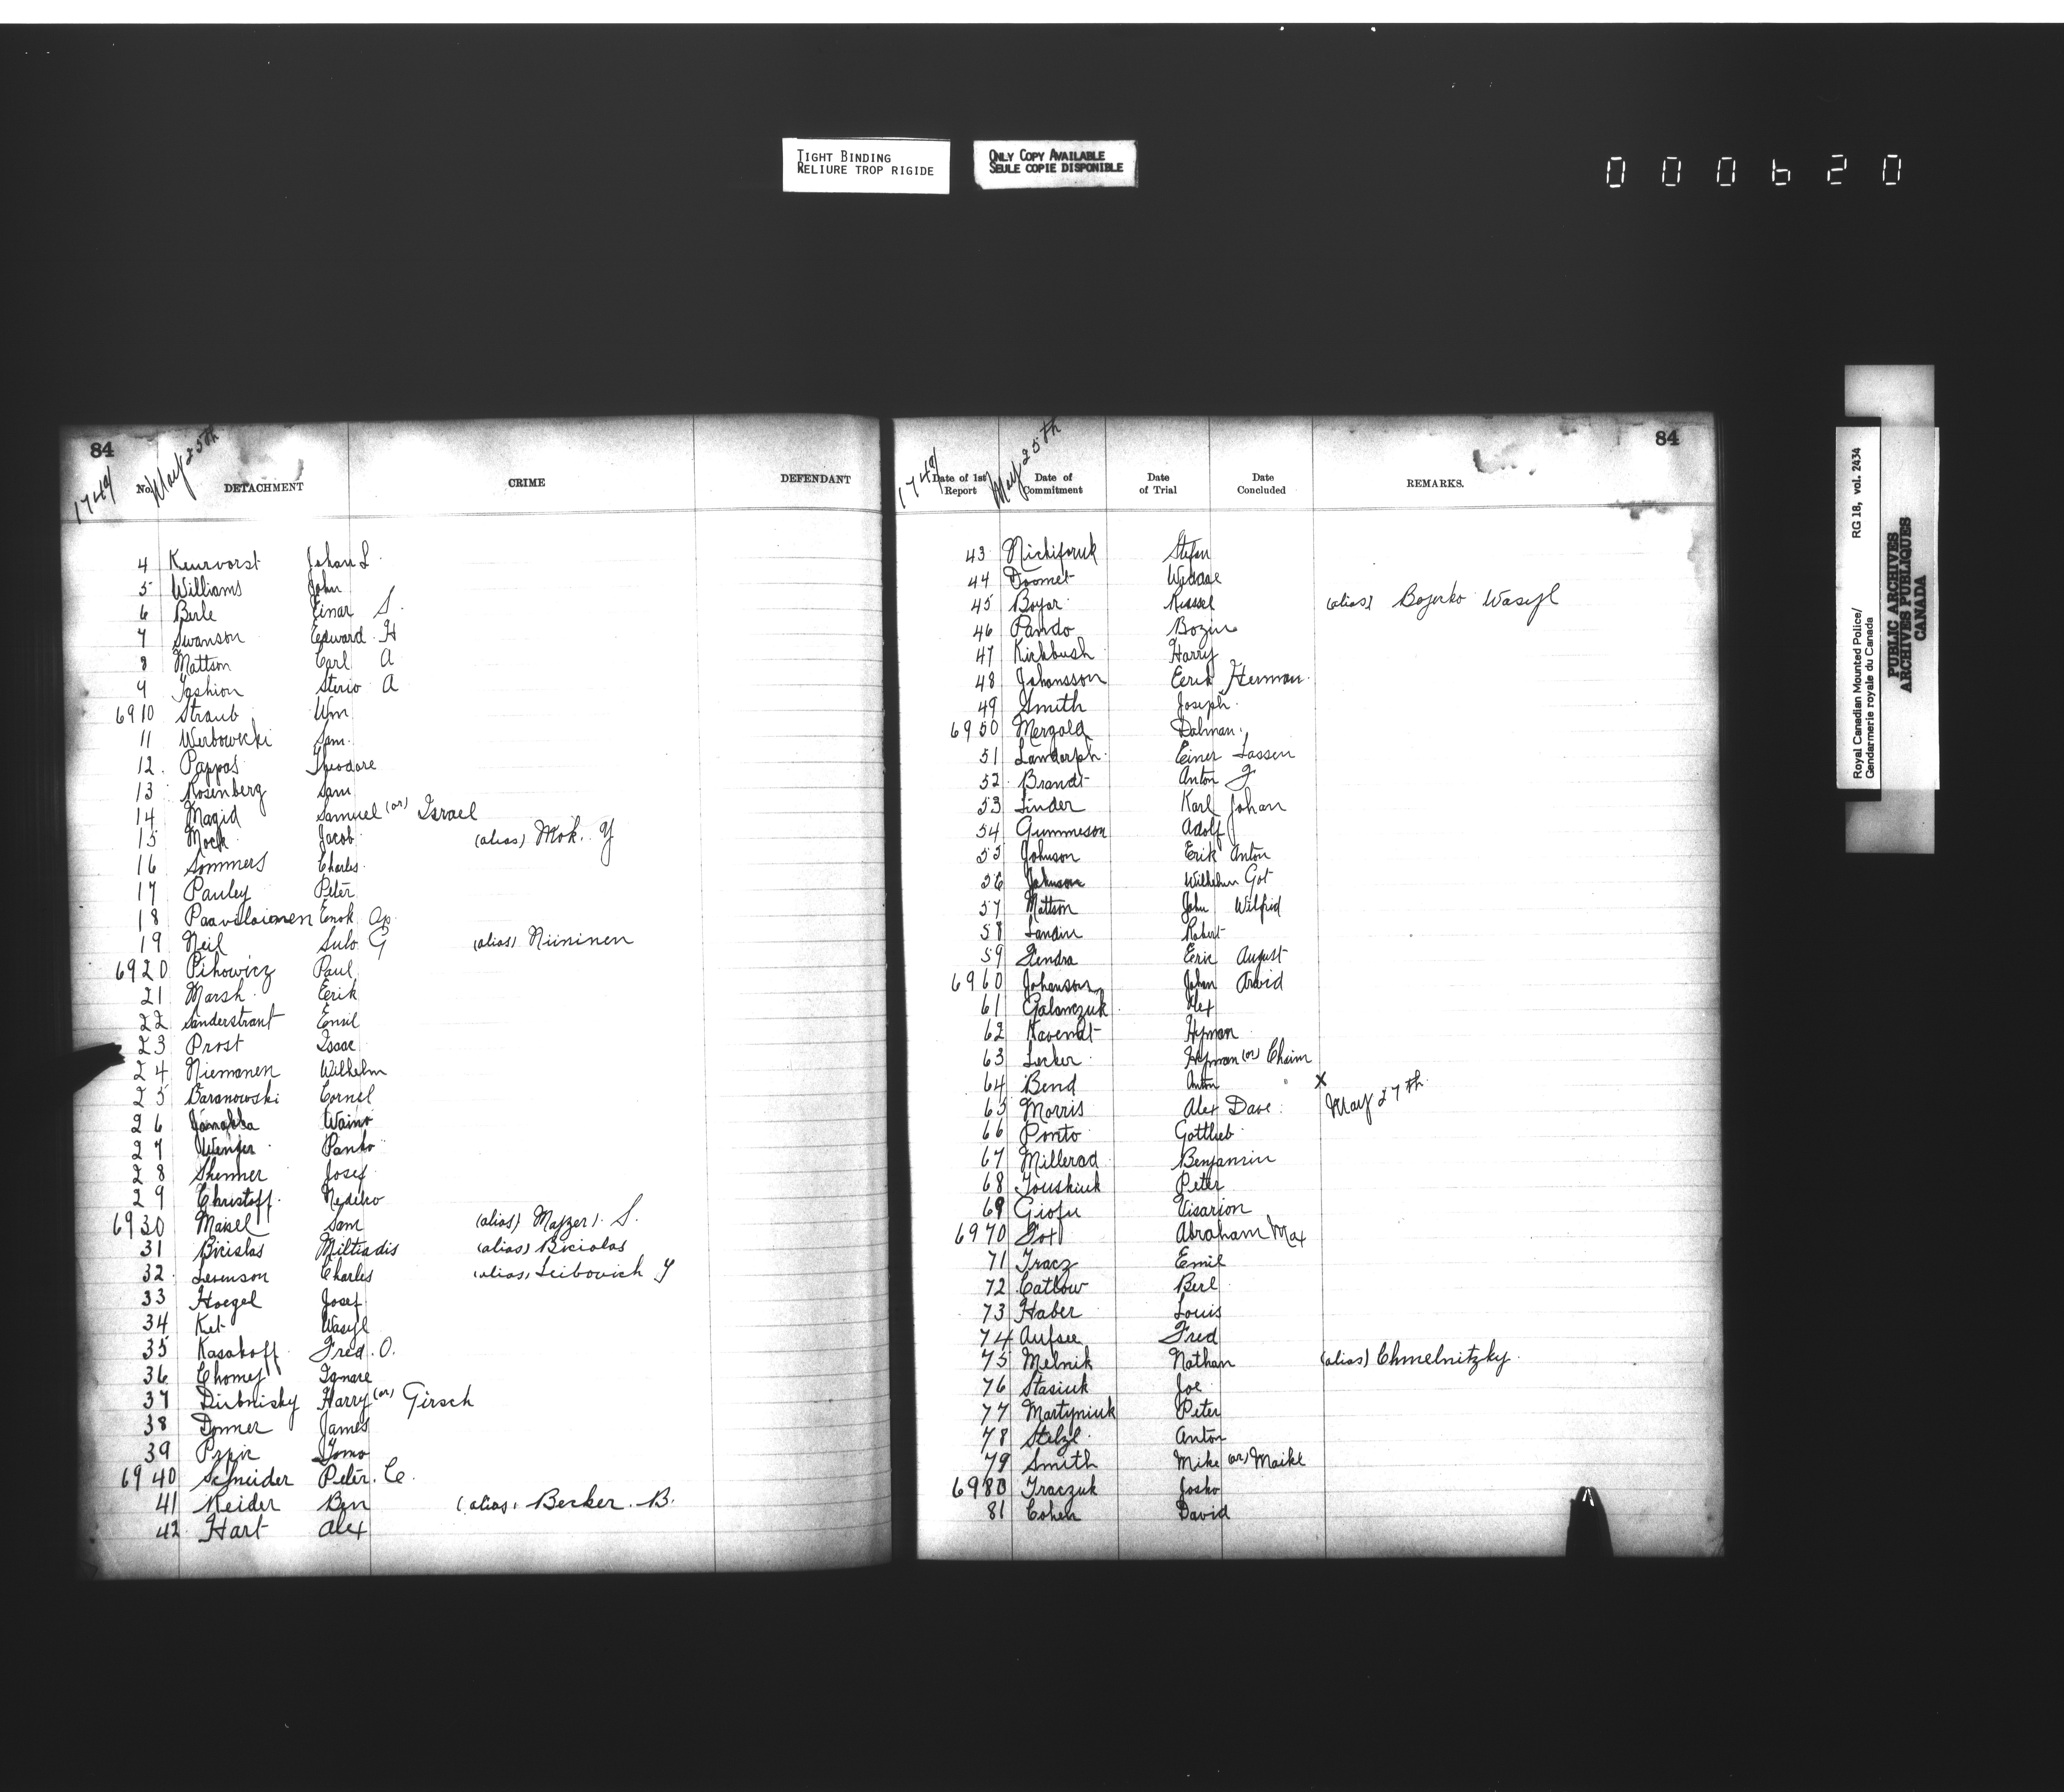 TIGHT BINDING
RELIURE TROP RIGIDE
ONLY COPY AVAILABLE
SEULE COPIE DISPONIBLE
000620
84
174 9/ May 25th
No. DETACHMENT CRIME DEFENDANT
4 Keurvorst Johan L.
5 Williams John
6 Berle Einar S.
7 Swanson Edward H
8 Mattson Carl A
9 Fashion Sterio A
6910 Straub Wm
11 Werbowicki Sam.
12. Pappas Theodore
13 Rosenberg Sam
14 Magid Samuel (or) Israel
15 Mock Jacob (alias) Mok. Y
16 Sommers Charles.
17 Pauley Peter
18 Paavilainen Enok Op.
19 Neil Sulo G (alias) Niininen
6920 Pihowicz Paul
21 Marsh. Erik
22 Sanderstrant Emil
23 Prost Isaac
24 Niemanen Wilhelm
25 Baranowski Cornel
26 Waino
27 Panko
28 Shemer Josef
29 Christoff.
6930 Maisel Sam (alias) Majzer). S.
31 Bicislas Miltiadis (alias) Biciolas
32. Levenson Charles (alias, Leibovich Y
33 Hoegel Josef
34 Ket Wasyl
35 Kasakoff Fred. O.
36 Chomej Ignace
37 Dubnisky Harry (or) Girsch
38 Donner James
39 Przic Tomo
6940 Schneider Peter. Ce.
41 Neider Ben (alias, Becker. B.
42 Hart Alex
84
174 9/ May 25th
Date of 1st Report Date of Commitment Date of Trial Date Concluded REMARKS.
43 Nichiforuk Stefan
44 Doomet Widdae
45 Boyar Russel (alias) Bojerko Wasyl
46 Pando Bozin
47 Kirkbush Harry
48 Johansson Eerik Herman.
49 Smith Joseph.
6950 Mergold Dalman.
51 Landorph. Einer Lassen
52. Brandt Anton F
53 Linder Karl Johan
54 Gummeson Adolf
55 Johnson Erik Anton
56 Johnson Wilhelm Got
57 Mattson John Wilfrid
58 Landin Robert
59 Stendra Eric August
6960 Johanson Johan Arvid
61 Galanczuk Alex
62 Kavendt Hyman
63 Lecker. Hyman (or) Chaim
64 Bend Anton X
65 Morris Alex Dave. May 27th.
66 Ponto Gottlieb.
67 Millerad Benjamin
68 Touskiuk Peter
69 Giofu Visarion
6970 Fox Abraham Max
71 Tracz Emil
72 Catlow Berl
73 Haber Louis
74 Aufsee Fred
75 Melnik Nathan (alias) Chmelnitzky.
76 Stasiuk Joe
77 Martyniuk Peter
78 Stelzl. Anton
79 Smith Mike (or) Maike
6980 Traczuk Josko
81 Cohen David
Royal Canadian Mounted Police/ RG 18, vol. 2434
Gendarmerie royale du Canada
PUBLIC ARCHIVES
ARCHIVES PUBLIQUES
CANADA